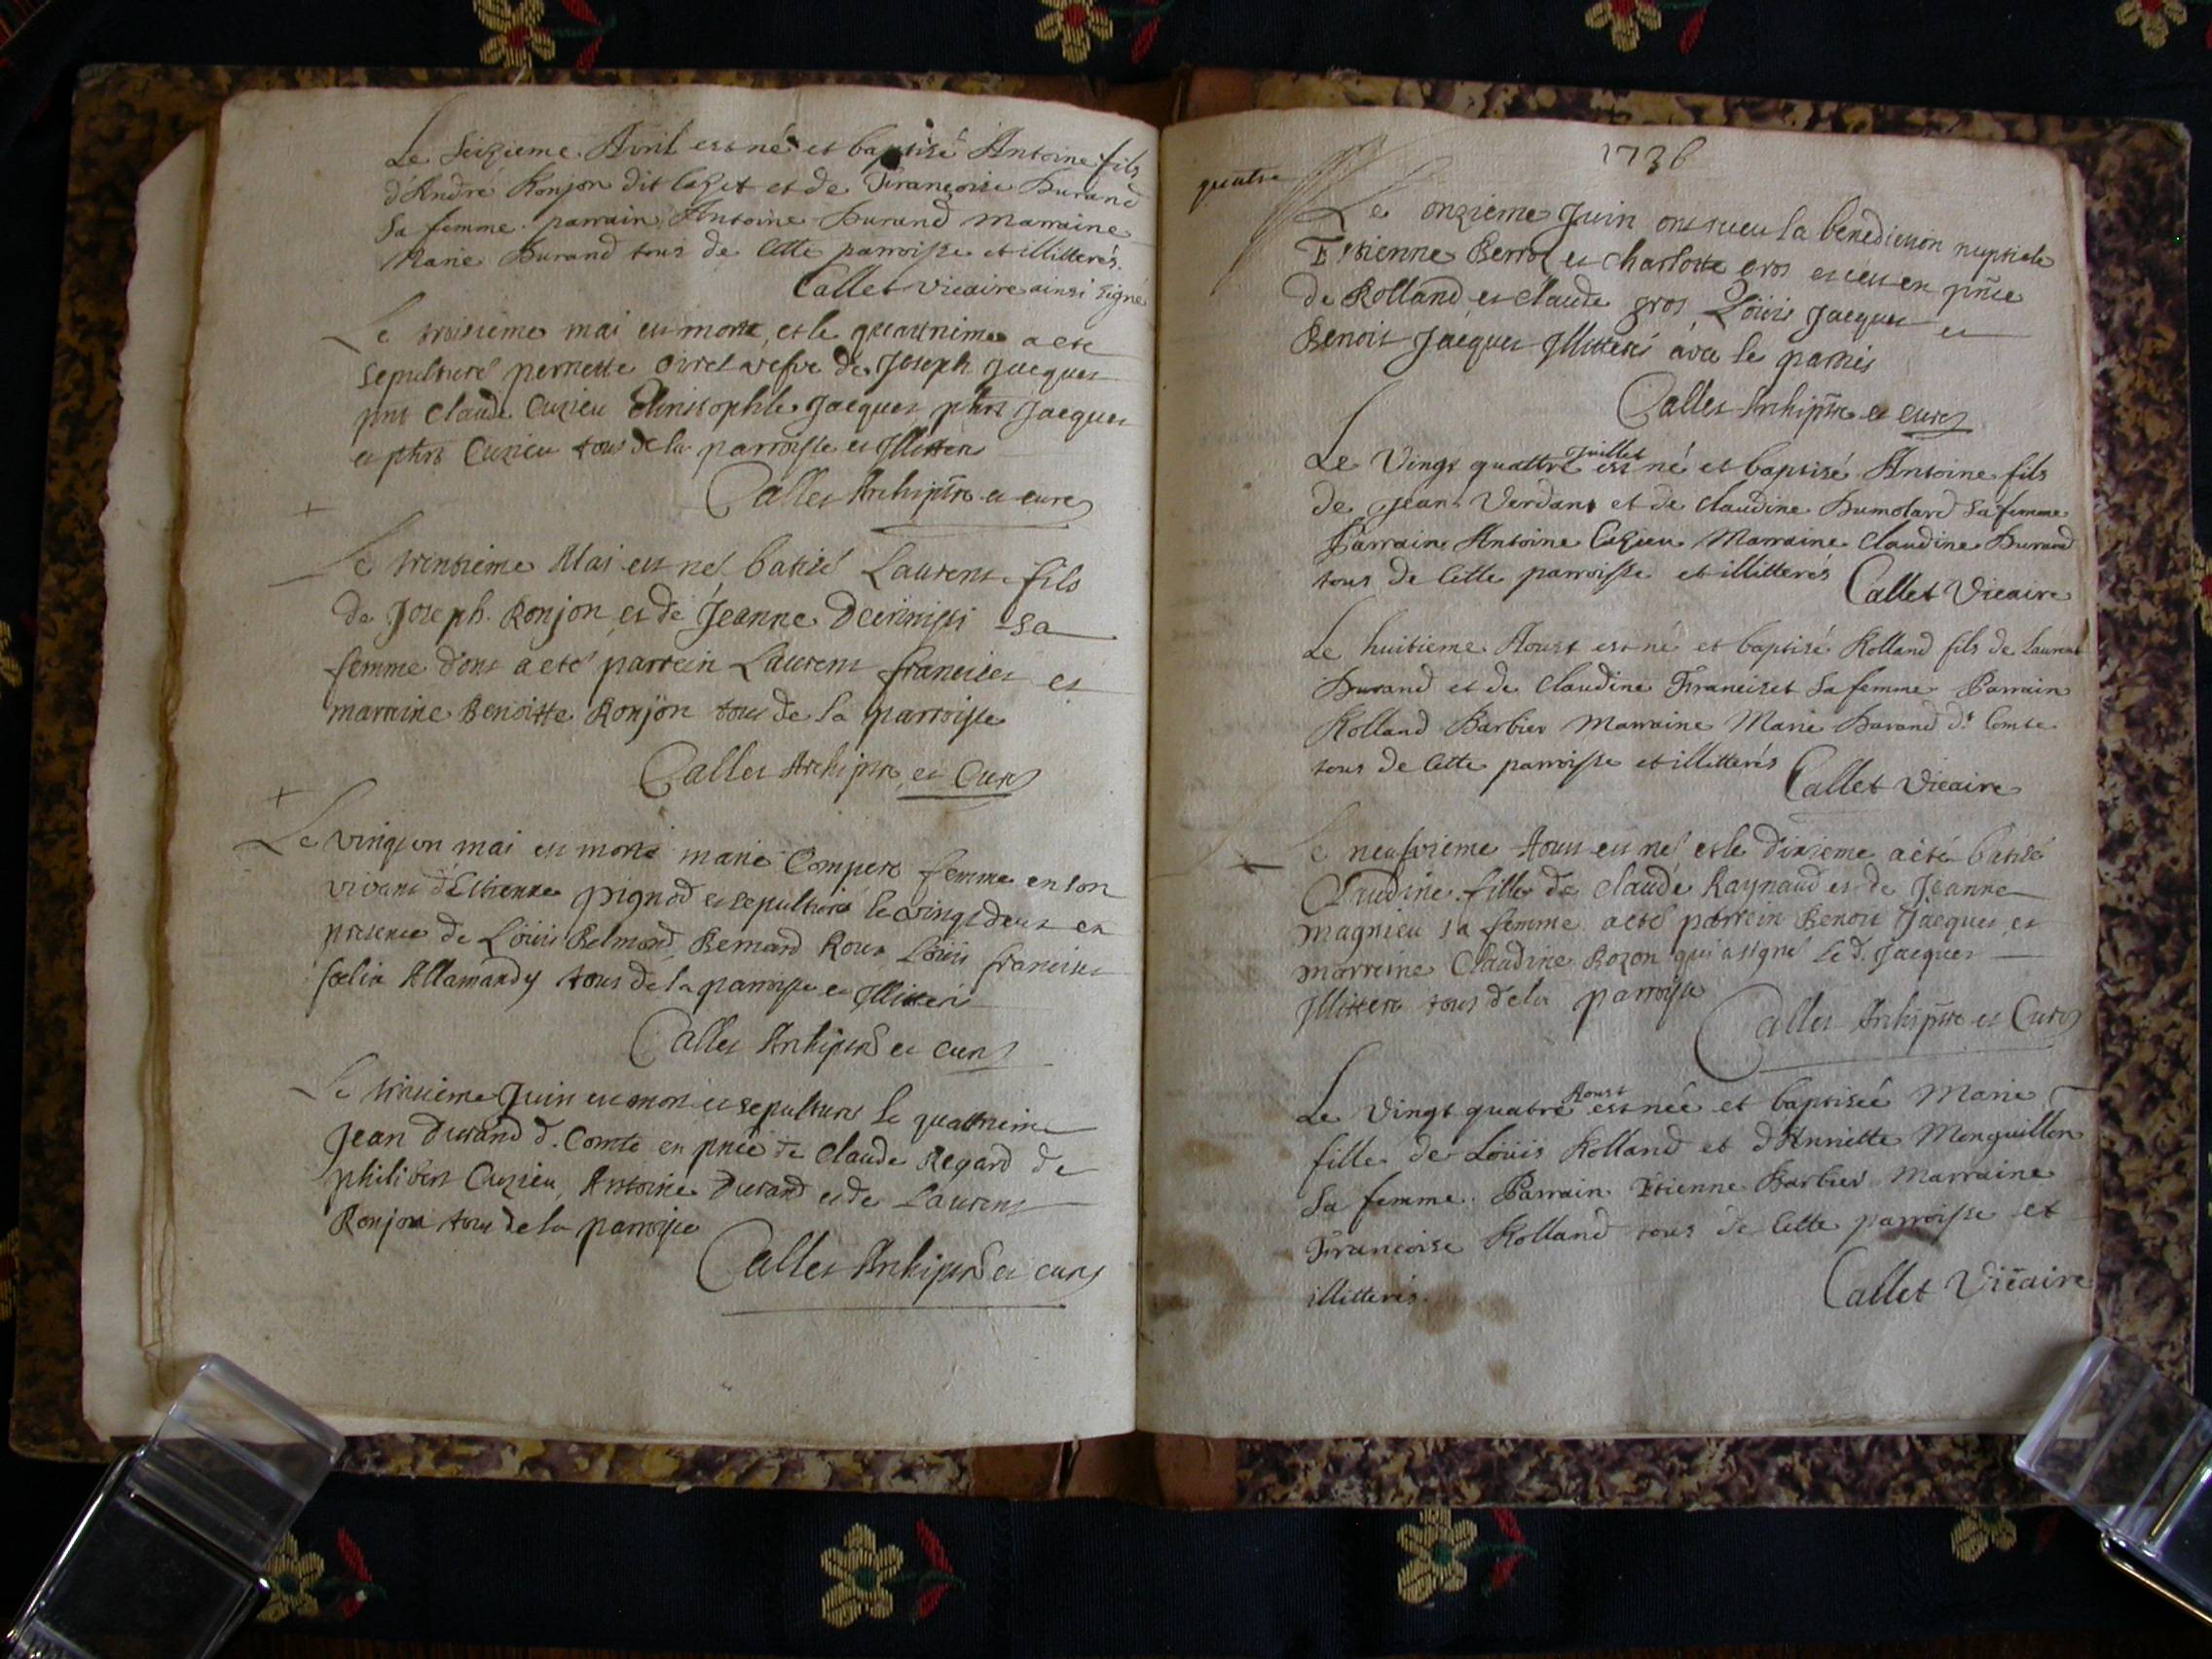 Le Seizieme Avril est né et baptisé Antoine fils
d'André Ronjon dit lazet et de Francoise Durand
sa femme. parrain Antoine Durand marraine
Marie Durand tous de cette parroisse et illitterés.
Callet vicaire ainsi signé
Le troisieme mai est mort, et le quattrieme a ete
sepulturé pernette vefve de Joseph Jacques
pnt Claude Cuzieu Christophle Jacques phrt Jacques
et phrt Cuzieu tous de la parroisse et Illitterés
Callet Archiptre et curé
Le trentieme Mai est né batisé Laurent fils
de Joseph Ronjon et de Jeanne sa
femme dont a eté parrein Laurent francises et
marraine Benoitte Ronjon tous de la parroisse
Callet Archiptre et Curé
Le vingt un mai est morte marie Compere femme en son
vivant d'Estienne pignod et sepulturée le vingt deux en
presence de Loüis Belmond, Bernard Roux Loüis francises
foelix Allamandy tous de la parroisse et Illitterés
Callet Archiptre et curé
Le troisieme Juin est mort et sepulturé le quattrieme
Jean Durand d. Comte en pnce de Claude Regard de
philibert Cuzieu, Antoine Durand et de Laurent
Ronjon tous de la parroisse
Callet Archiptre et curé
1736
quatre
Le onzieme Juin ont receu la benediction nuptiale
Estienne Berrod et charlotte gros et ceu en pnce
de Rolland et claude gros, Loüis Jacques et
Benoit Jacques Illitterés avec le parties
Callet Archiptre et curé
juillet
Le Vingt quattre est né et baptisé Antoine fils
de Jean Verdant et de Claudine Dumolard sa femme
Parrain Antoine Cuzieu Marraine Claudine Durand
tous de Cette parroisse et illitterés Callet Vicaire
Le huitieme Aoust est né et baptisé Rolland fils de Laurent
Durand et de Claudine Franciset sa femme Parrain
Rolland Barbier Marraine Marie Durand dt Comte
tous de Cette parroisse et illitterés Callet Vicaire
Le neufvieme Aoust est né et le dixieme a été batisé
Claudine fille de Claude Raynaud et de Jeanne
magnieu sa femme a eté parrein Benoit Jacques et
marreine Claudine Rozon qui a signé Le d. Jacques
Illitteré tous de la parroisse
Callet Archiptre et Curé
Aoust
Le Vingt quatre est née et baptisée Marie
fille de Loüis Rolland et d'Anriette Monguillon
sa femme. Parrain Etienne Barbier Marraine
Francoise Rolland tous de Cette parroisse et
illitterés.
Callet Vicaire